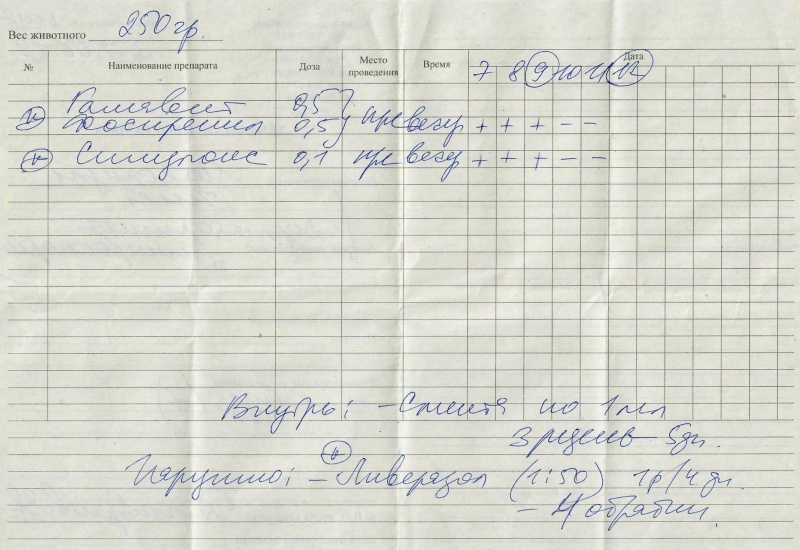 Вес животного 250 гр.
№ Наименование препарата Доза Место проведения Время Дата
7 8 9 10 11 12
Гамавит 0,5
0,5 веч + + + – –
0,1 веч + + + – –
Внутрь: – Смекта по 1 мл
3 р/день 5 дн.
Наружно: – (1:50) 1 р/4 дн.
– 4 обработки.